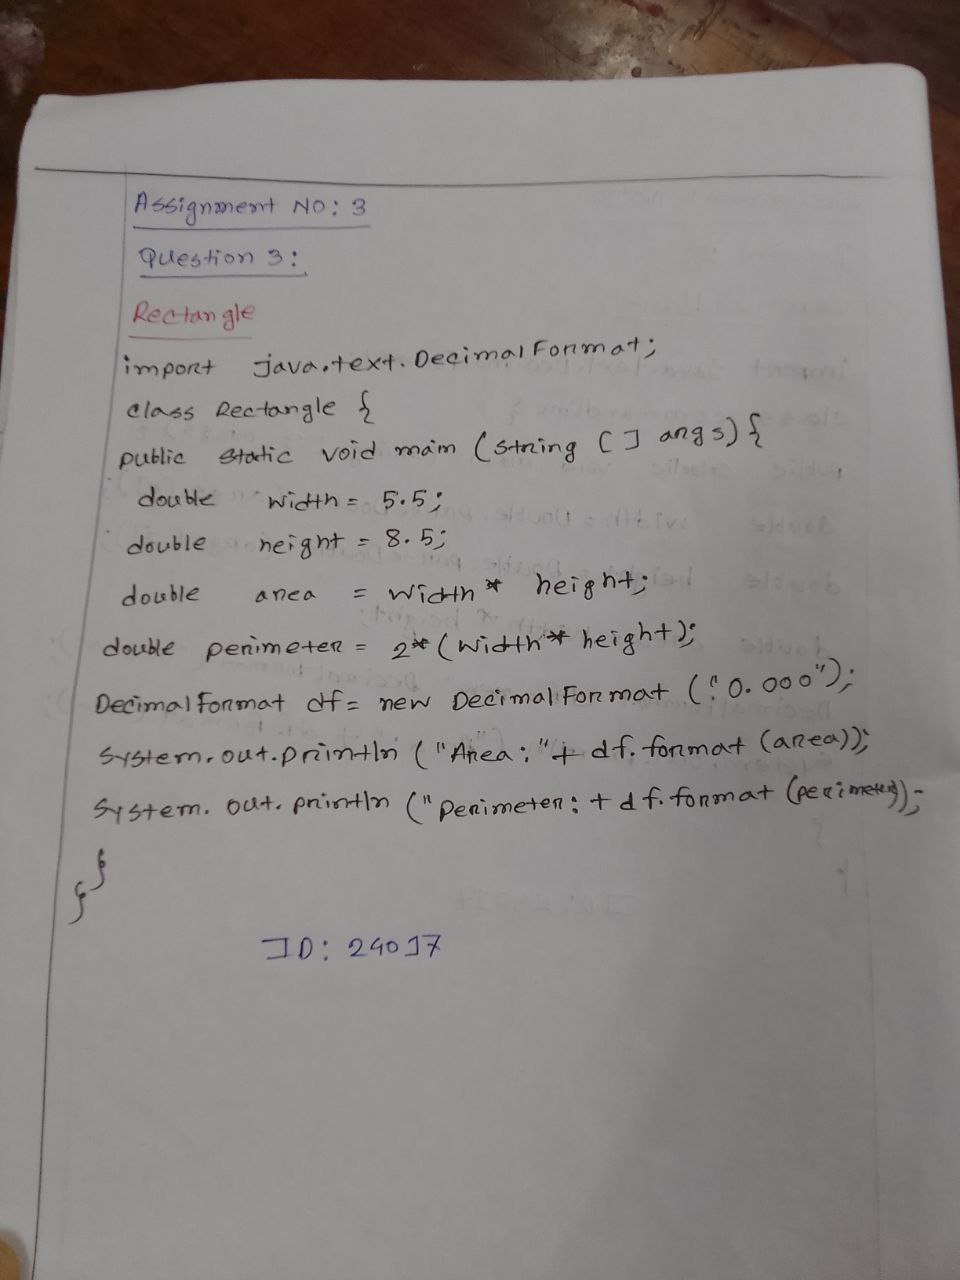 Assignment NO: 3
Question 3:
Rectangle
import java.text.DecimalFormat;
class Rectangle {
public static void main (string [] args) {
double width = 5.5;
double height = 8.5;
double area = width * height;
double perimeter = 2* (width * height);
DecimalFormat df = new DecimalFormat ("0.000");
System.out.println ("Area:" + df.format (area));
System.out.println ("perimeter: + df.format (perimeter));
}
}
ID: 24017